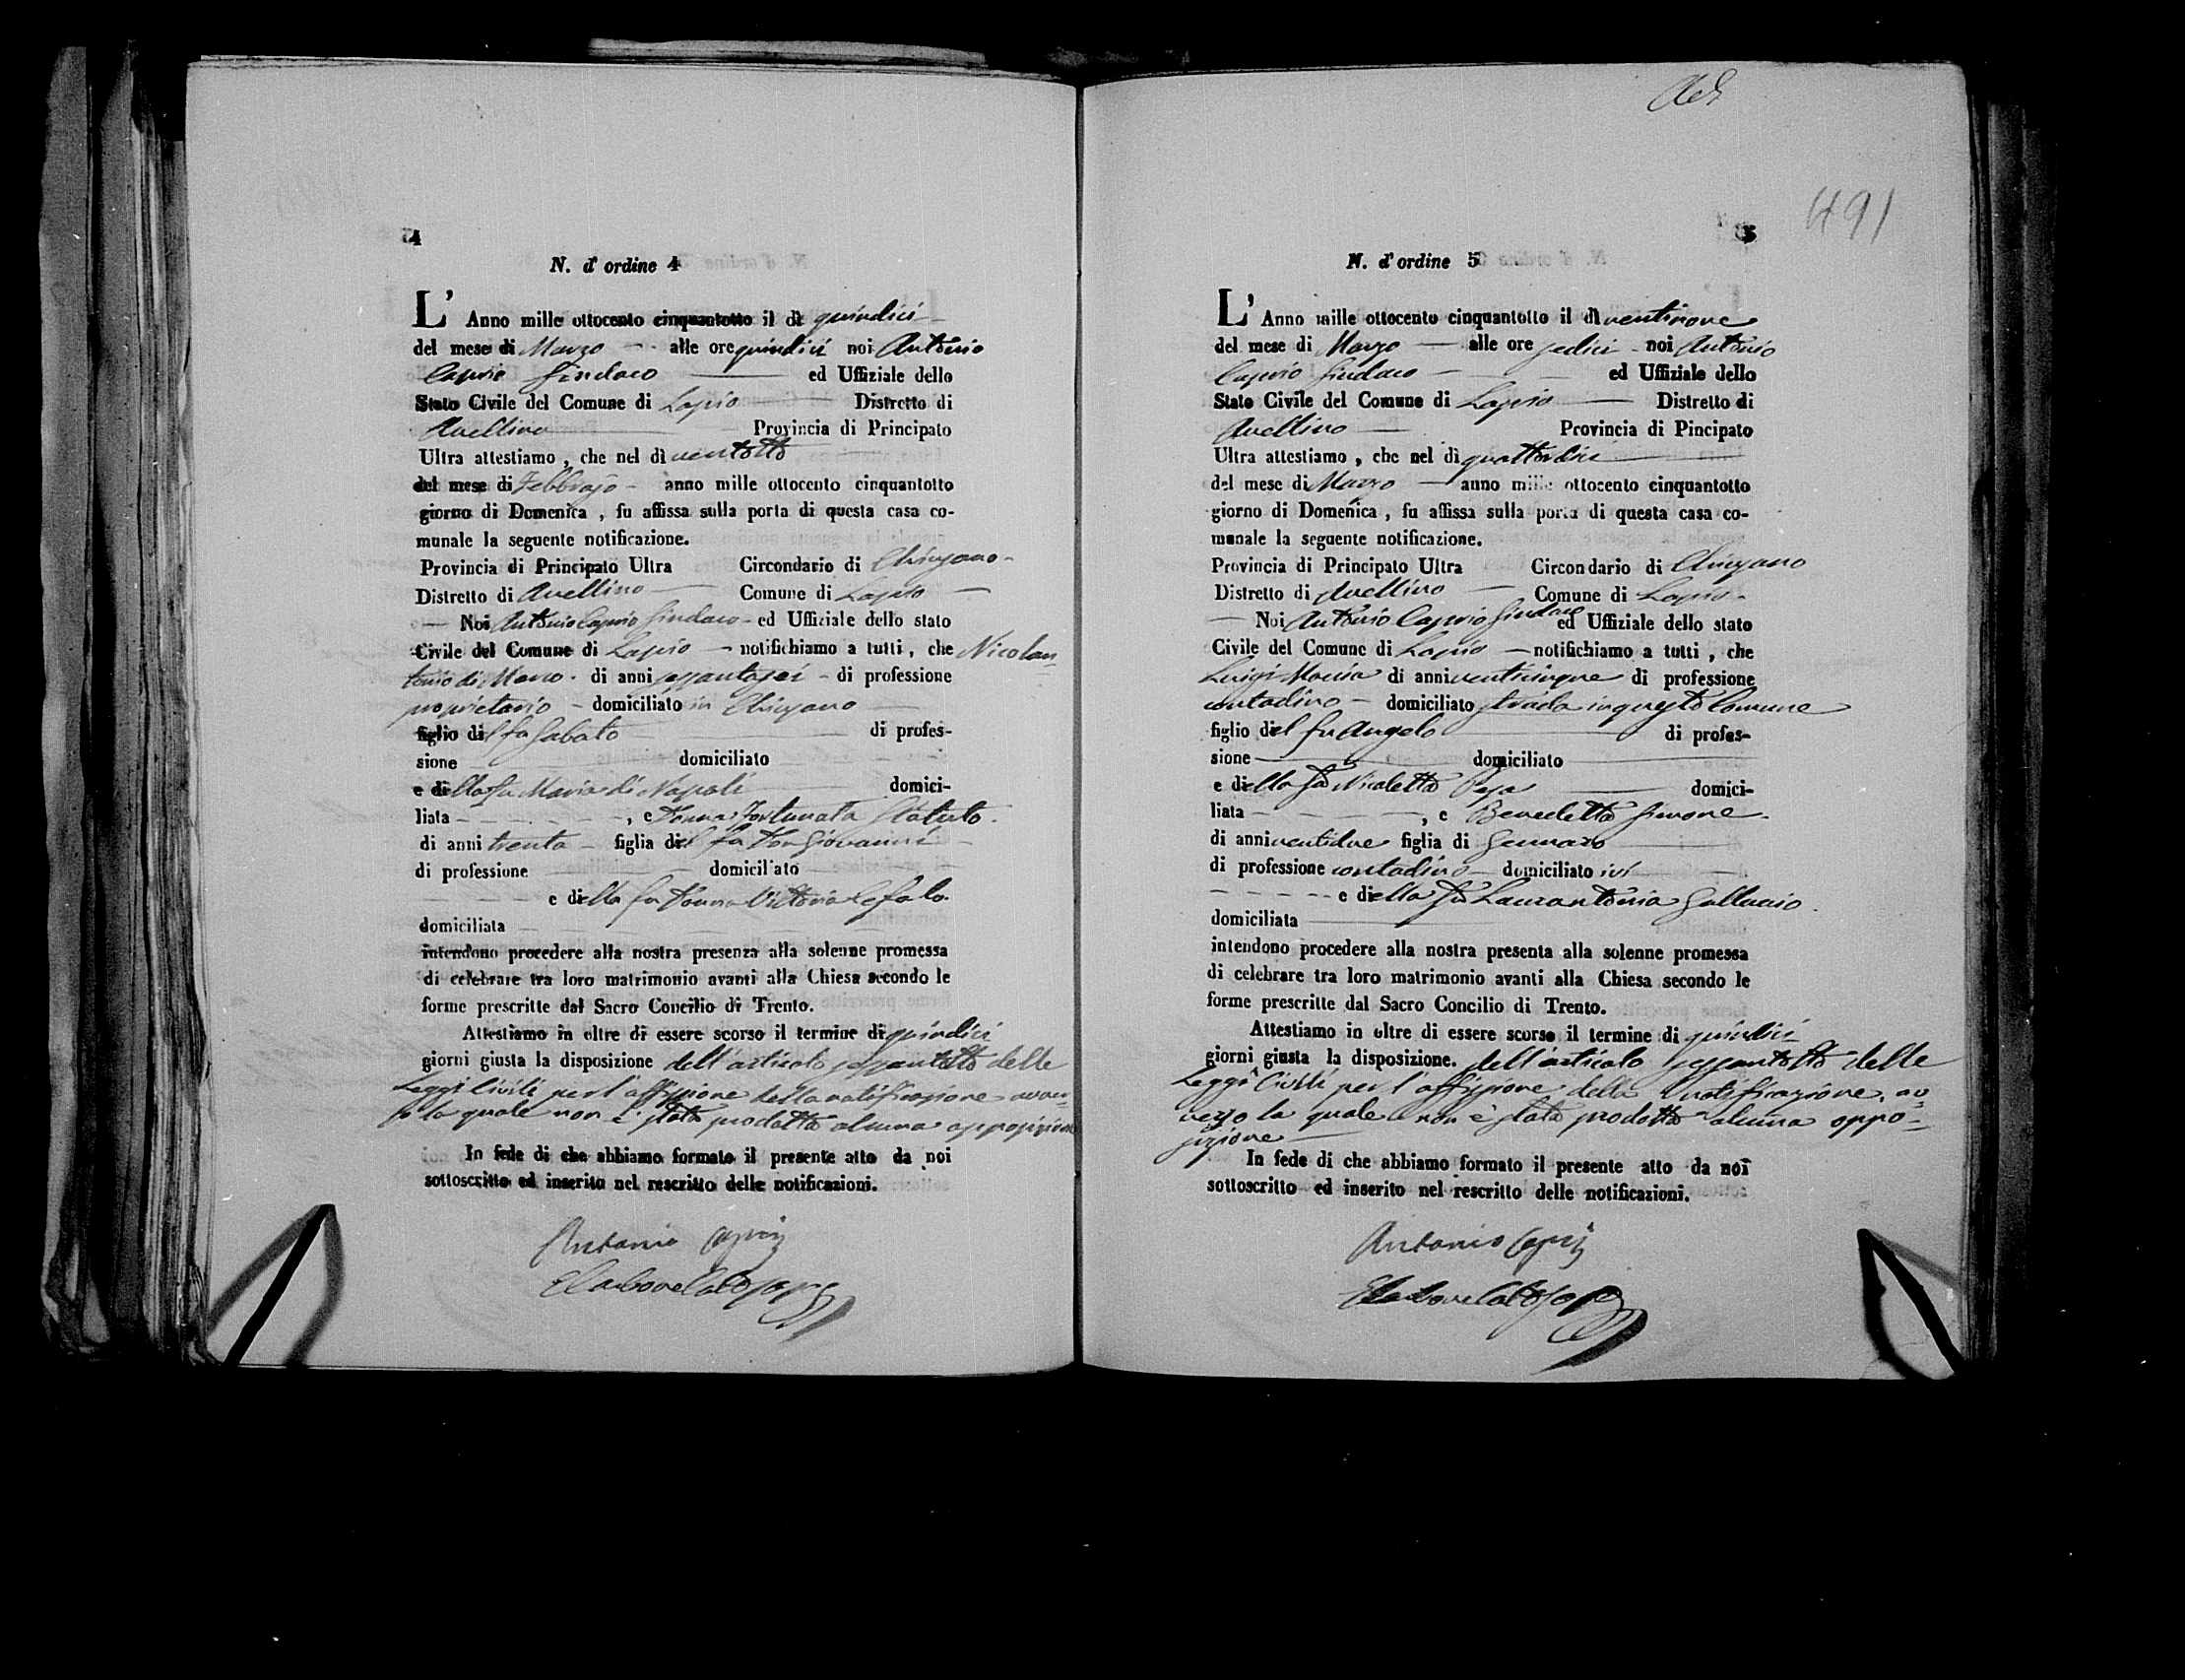 4
N. d'ordine 4
L' Anno mille ottocento cinquantotto il dì quindici
del mese di Marzo alle ore quindici noi Antonio
Caprio Sindaco ed Uffiziale dello
Stato Civile del Comune di Lapio Distretto di
Avellino Provincia di Principato
Ultra attestiamo, che nel dì ventotto
del mese di Febbrajo anno mille ottocento cinquantotto
giorno di Domenica, fu affissa sulla porta di questa casa co-
munale la seguente notificazione.
Provincia di Principato Ultra Circondario di Chiusano
Distretto di Avellino Comune di Lapio
Noi Antonio Caprio Sindaco ed Uffiziale dello stato
Civile del Comune di Lapio notifichiamo a tutti, che Nicolan=
tonio di Marco di anni sessantasei di professione
proprietario domiciliato in Chiusano
figlio del fu Sabato di profes-
sione domiciliato
e della fu Maria di Napoli domici-
liata , e Donna Fortunata Statuto
di anni trenta figlia del fu Don Giovanni
di professione domiciliato
e della fu Donna Vittoria Cefalo
domiciliata
intendono procedere alla nostra presenza alla solenne promessa
di celebrare tra loro matrimonio avanti alla Chiesa secondo le
forme prescritte dal Sacro Concilio di Trento.
Attestiamo in oltre di essere scorso il termine di quindici
giorni giusta la disposizione dell'articolo sessantotto delle
Leggi Civili per l'affissione della notificazione avver=
so la quale non è stata prodotta alcuna opposizione
In fede di che abbiamo formato il presente atto da noi
sottoscritto ed inserito nel rescritto delle notificazioni.
Antonio Caprio
491
5
N. d'ordine 5
L' Anno mille ottocento cinquantotto il dì ventinove
del mese di Marzo alle ore sedici noi Antonio
Caprio Sindaco ed Uffiziale dello
Stato Civile del Comune di Lapio Distretto di
Avellino Provincia di Pincipato
Ultra attestiamo, che nel dì quattordici
del mese di Marzo anno mille ottocento cinquantotto
giorno di Domenica, fu affissa sulla porta di questa casa co-
munale la seguente notificazione.
Provincia di Principato Ultra Circondario di Chiusano
Distretto di Avellino Comune di Lapio
Noi Antonio Caprio Sindaco ed Uffiziale dello stato
Civile del Comune di Lapio notifichiamo a tutti, che
Luigi Moccia di anni venticinque di professione
contadino domiciliato strada in questo Comune
figlio del fu Angelo di profes-
sione domiciliato
e della fu Nicoletta Pepe domici-
liata , e Benedetta Simone
di anni ventidue figlia di Gennaro
di professione contadino domiciliato ivi
e della fu Laurantonia Galluccio
domiciliata
intendono procedere alla nostra presenta alla solenne promessa
di celebrare tra loro matrimonio avanti alla Chiesa secondo le
forme prescritte dal Sacro Concilio di Trento.
Attestiamo in oltre di essere scorso il termine di quindici
giorni giusta la disposizione. dell'articolo sessantotto delle
Leggi Civili per l'affissione della notificazione, av=
verso la quale non è stata prodotta alcuna oppo=
sizione
In fede di che abbiamo formato il presente atto da noi
sottoscritto ed inserito nel rescritto delle notificazioni.
Antonio Caprio